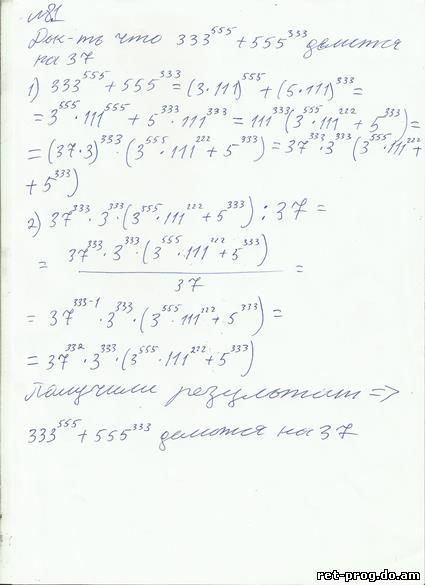 №81
Док-ть что 333^555 + 555^333 делится
на 37
1) 333^555 + 555^333 = (3·111)^555 + (5·111)^333 =
= 3^555 · 111^555 + 5^333 · 111^333 = 111^333 (3^555 · 111^222 + 5^333) =
= (37·3)^333 · (3^555 · 111^222 + 5^333) = 37^333 · 3^333 (3^555 · 111^222 +
+ 5^333)
2) 37^333 · 3^333 · (3^555 · 111^222 + 5^333) : 37 =
= 37^333 · 3^333 · (3^555 · 111^222 + 5^333)
37 =
= 37^333-1 · 3^333 · (3^555 · 111^222 + 5^333) =
= 37^332 · 3^333 · (3^555 · 111^222 + 5^333)
Получили результат =>
333^555 + 555^333 делится на 37
ret-prog.do.am